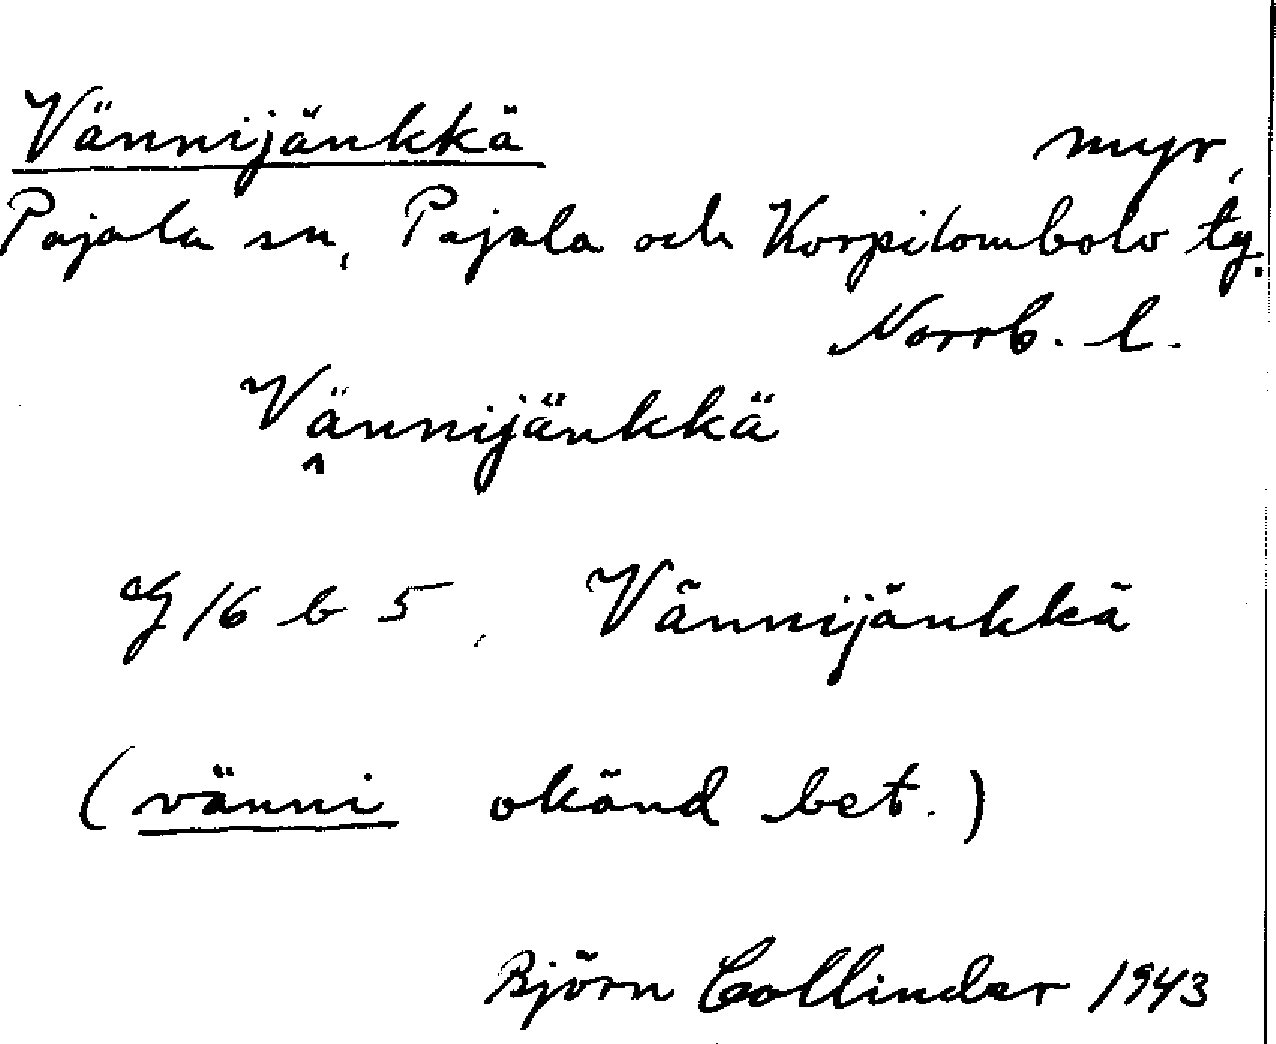 Vännijänkkä myr,
Pajala sn, Pajala och Korpilombolo tg.
Norrb. l.
Vännijänkkä
G 16 b 5, Vännijänkkä
(vänni okänd bet.)
Björn Collinder 1943